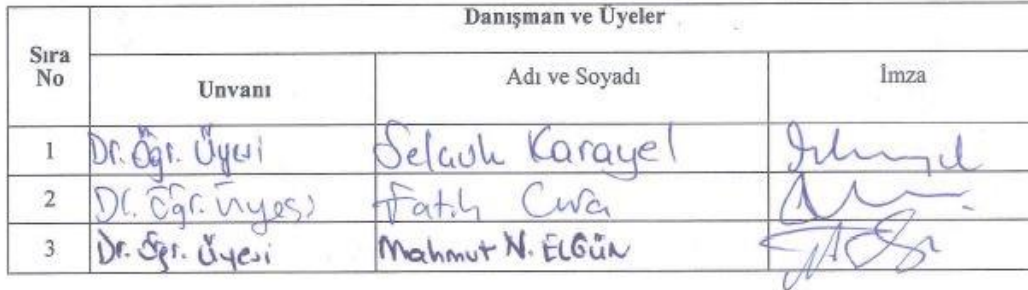 Danışman ve Üyeler
Sıra No Unvanı Adı ve Soyadı İmza
1 Dr. Öğr. Üyesi Selcuk Karayel
2 Dr. Öğr. Üyesi Fatih Cıra
3 Dr. Öğr. Üyesi Mahmut N. ELGÜN